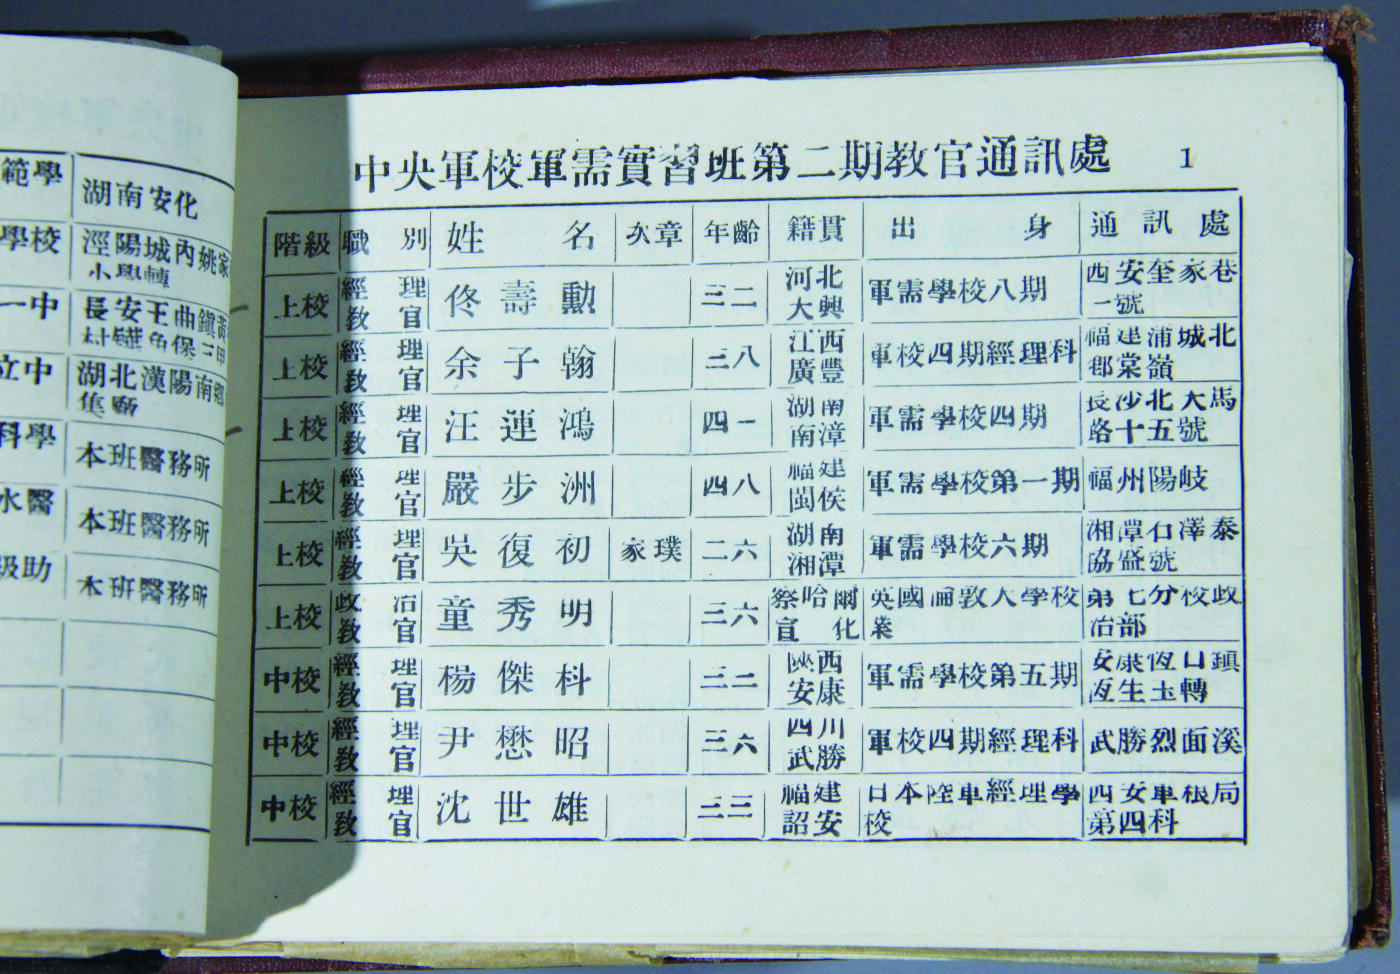 範學 湖南安化
學校 涇陽城內姚家
小學轉
一中 長安王曲鎮黃
村鏵角保三甲
立中 湖北漢陽南鄉
集廟
科學 本班醫務所
水醫 本班醫務所
級助 本班醫務所
中央軍校軍需實習班第二期教官通訊處 1
階級 職別 姓名 次章 年齡 籍貫 出身 通訊處
上校 經理教官 佟壽勳 三二 河北大興 軍需學校八期 西安奎家巷一號
上校 經理教官 余子翰 三八 江西廣豐 軍校四期經理科 福建浦城北鄉棠嶺
上校 經理教官 汪蓮鴻 四一 湖南南漳 軍需學校四期 長沙北大馬路十五號
上校 經理教官 嚴步洲 四八 福建閩侯 軍需學校第一期 福州陽岐
上校 經理教官 吳復初 家璞 二六 湖南湘潭 軍需學校六期 湘潭石澤泰協盛號
上校 政治教官 童秀明 三六 察哈爾宣化 英國倫敦大學校業 第七分校政治部
中校 經理教官 楊傑科 三二 陝西安康 軍需學校第五期 安康恆口鎮恆生玉轉
中校 經理教官 尹懋昭 三六 四川武勝 軍校四期經理科 武勝烈面溪
中校 經理教官 沈世雄 三三 福建詔安 日本陸軍經理學校 西安軍糧局第四科